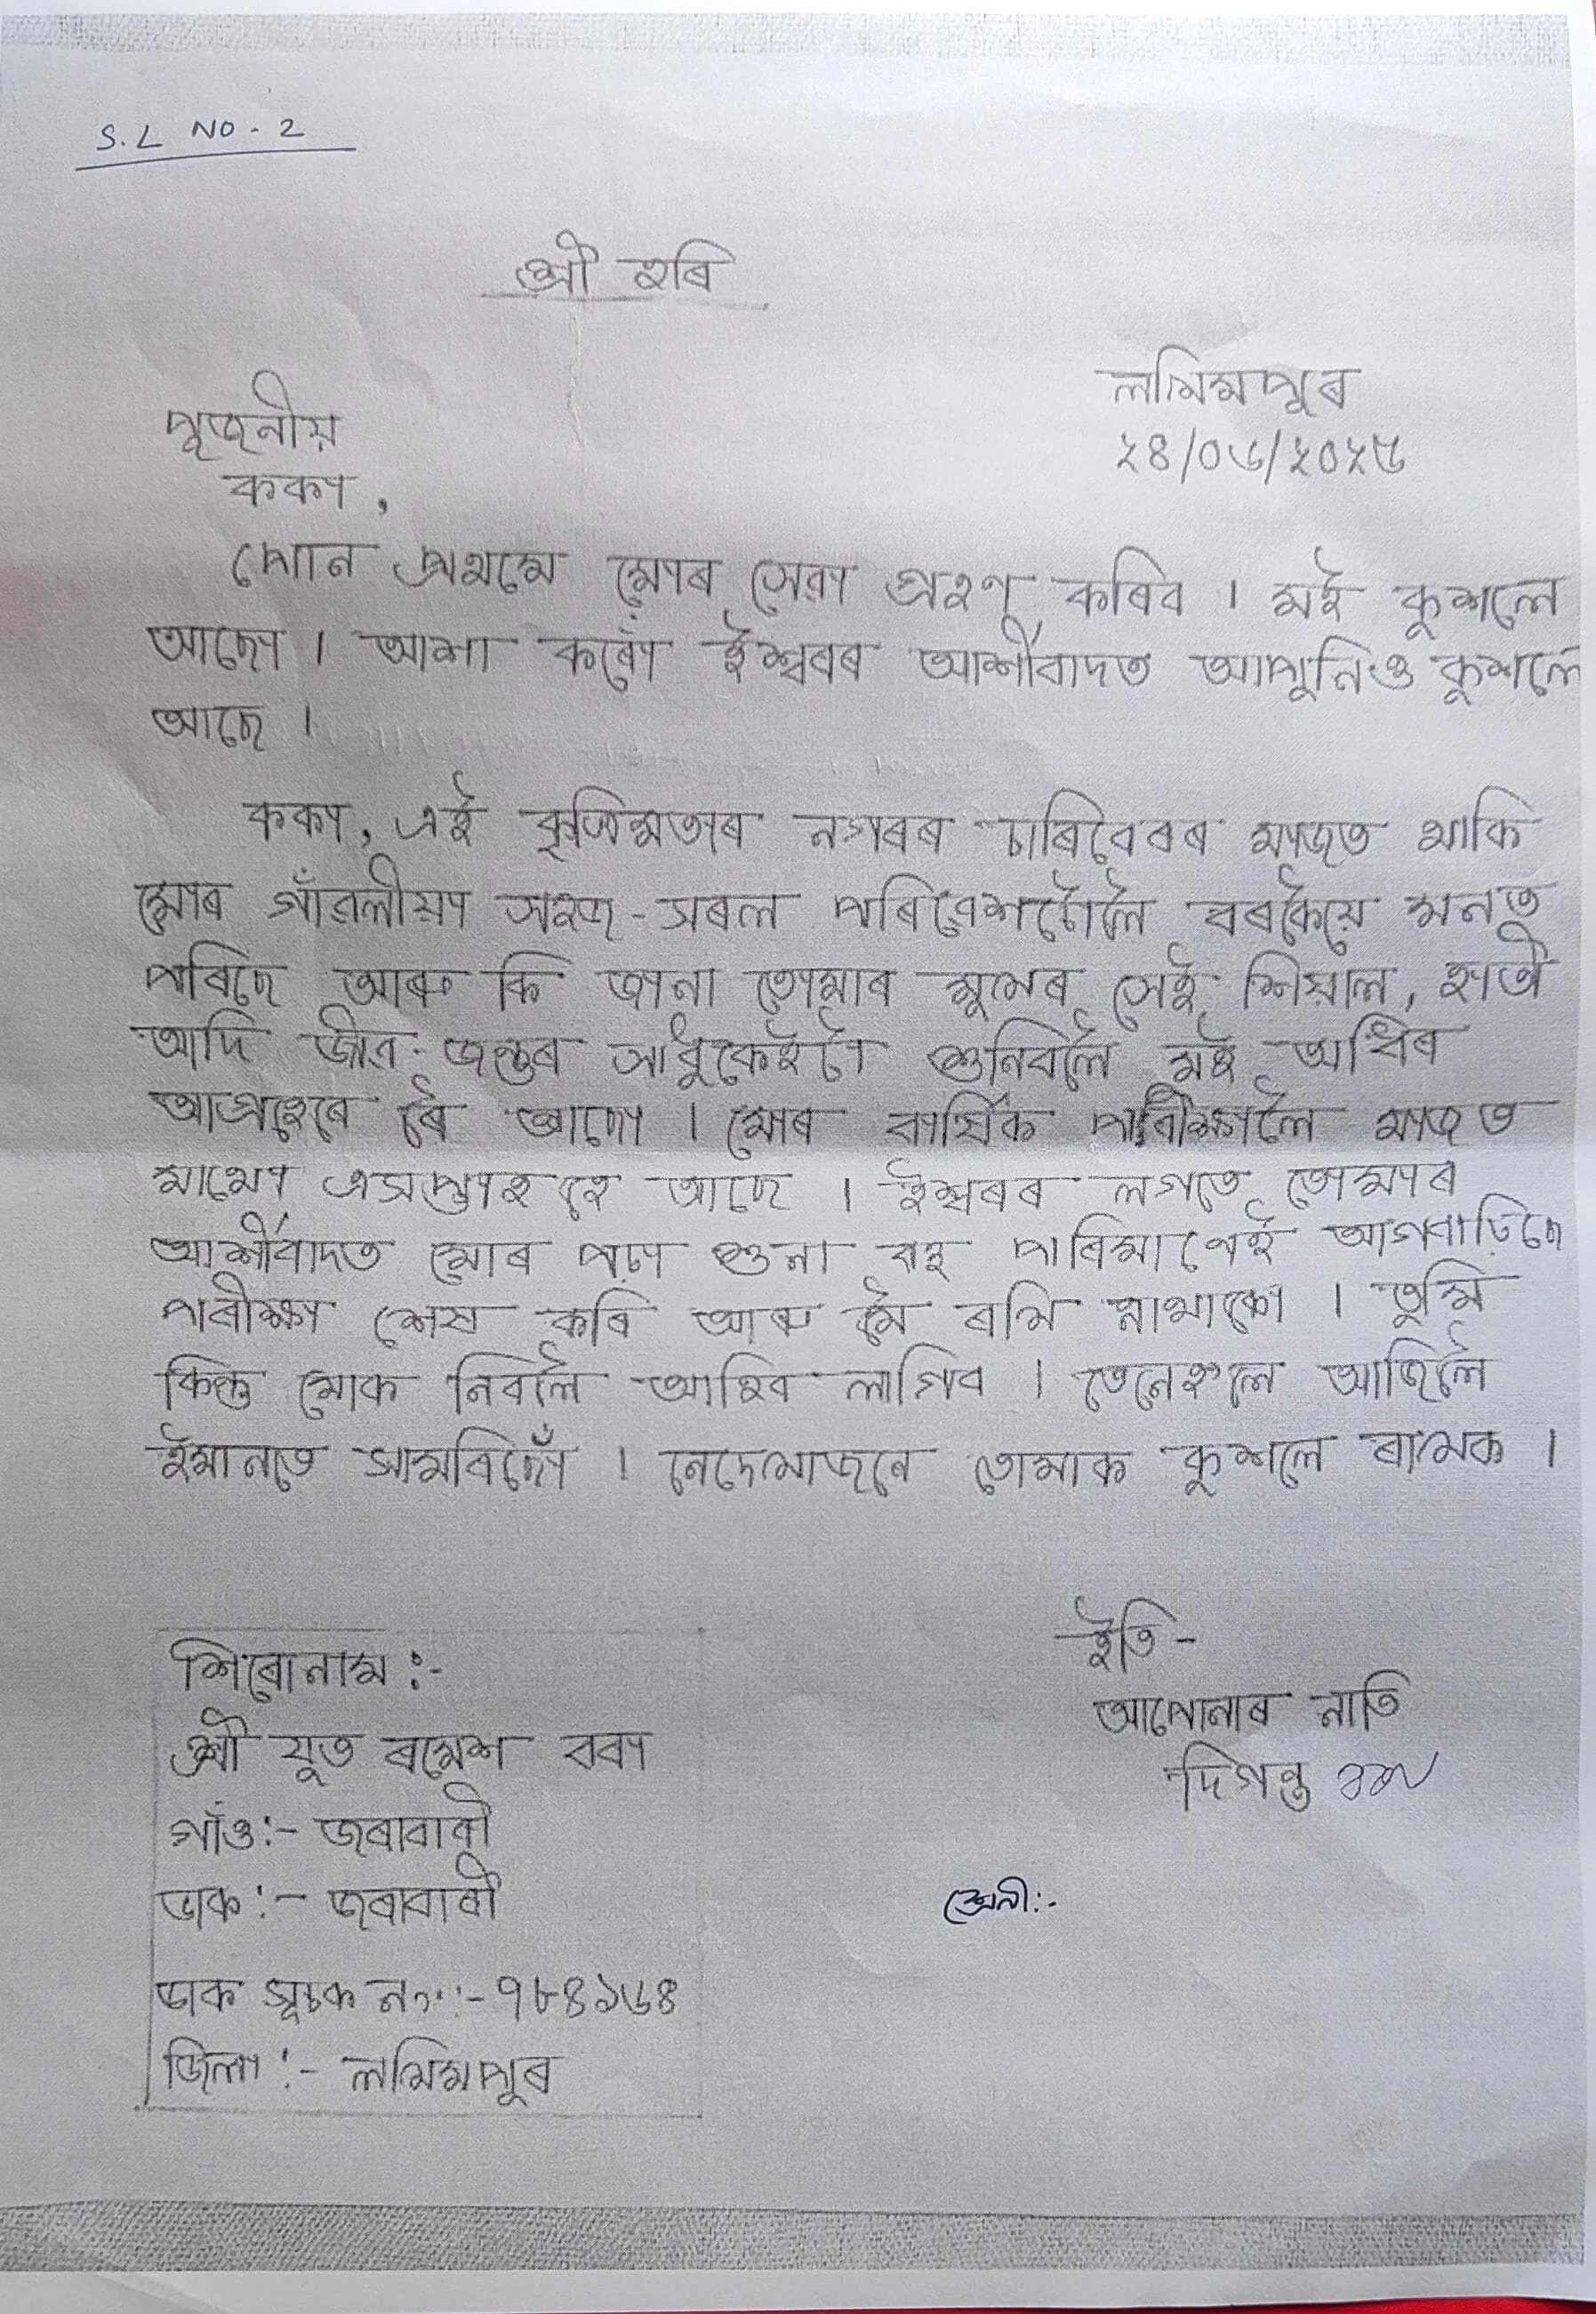 S.L NO-2
শ্ৰী হৰি
লখিমপুৰ
২৪/০৬/২০২৫
পূজনীয়
ককা,
পোন প্ৰথমে মোৰ সেৱা গ্ৰহণ কৰিব । মই কুশলে
আছো । আশা কৰোঁ ঈশ্বৰৰ আৰ্শীবাদত আপুনিও কুশলে
আছে ।
ককা, এই কৃত্ৰিমতাৰ নগৰৰ চাৰিবেৰৰ মাজত থাকি
মোৰ গাঁৱলীয়া সহজ-সৰল পৰিৱেশটোলৈ বৰকৈয়ে মনত
পৰিছে আৰু কি জানা তোমাৰ মুখেৰ সেই শিয়াল, হাতী
আদি জীৱ-জন্তুৰ সাধুকেইটা শুনিবলৈ মই অধিৰ
আগ্ৰহেৰে ৰৈ আছো । মোৰ বাৰ্ষিক পৰীক্ষালৈ মাজত
মাথো এসপ্তাহ হে আছে । ঈশ্বৰৰ লগতে তোমাৰ
আৰ্শীবাদত মোৰ পঢ়া শুনা বহু পৰিমাণেই আগবাঢ়িছে
পৰীক্ষা শেষ কৰি আৰু মৈ ৰখি নাথাকো । তুমি
কিন্তু মোক নিবলৈ আহিব লাগিব । তেনেহলে আজিলৈ
ইমানতে সামৰিছোঁ । নেদেখাজনে তোমাক কুশলে ৰাখক ।
ইতি-
আপোনাৰ নাতি
দিগন্ত
শিৰোনাম :-
শ্ৰী যুত ৰমেশ বৰা
গাঁও:- জৰাবাৰী
ডাক:- জৰাবাৰী
ডাক সূচক নং:-৭৮৪১৬৪
জিলা:- লখিমপুৰ
শ্ৰেনী:-